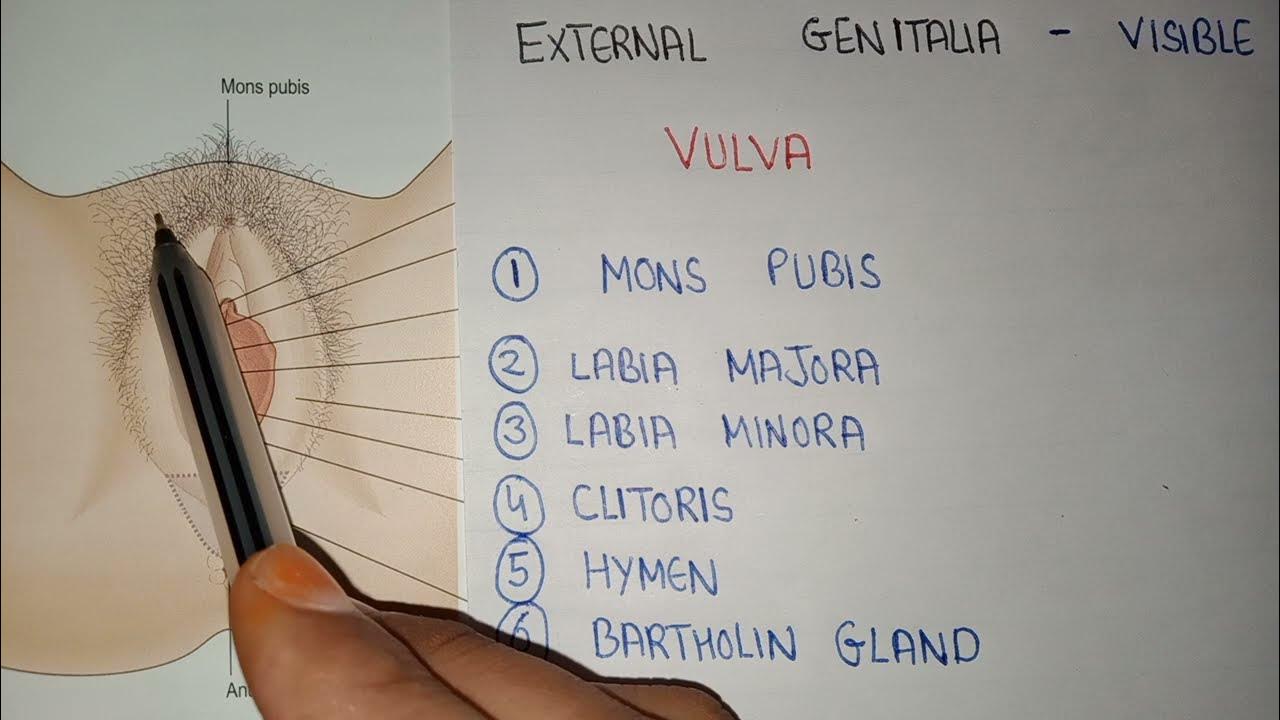 Mons pubis
EXTERNAL GENITALIA - VISIBLE
VULVA
1 MONS PUBIS
2 LABIA MAJORA
3 LABIA MINORA
4 CLITORIS
5 HYMEN
6 BARTHOLIN GLAND